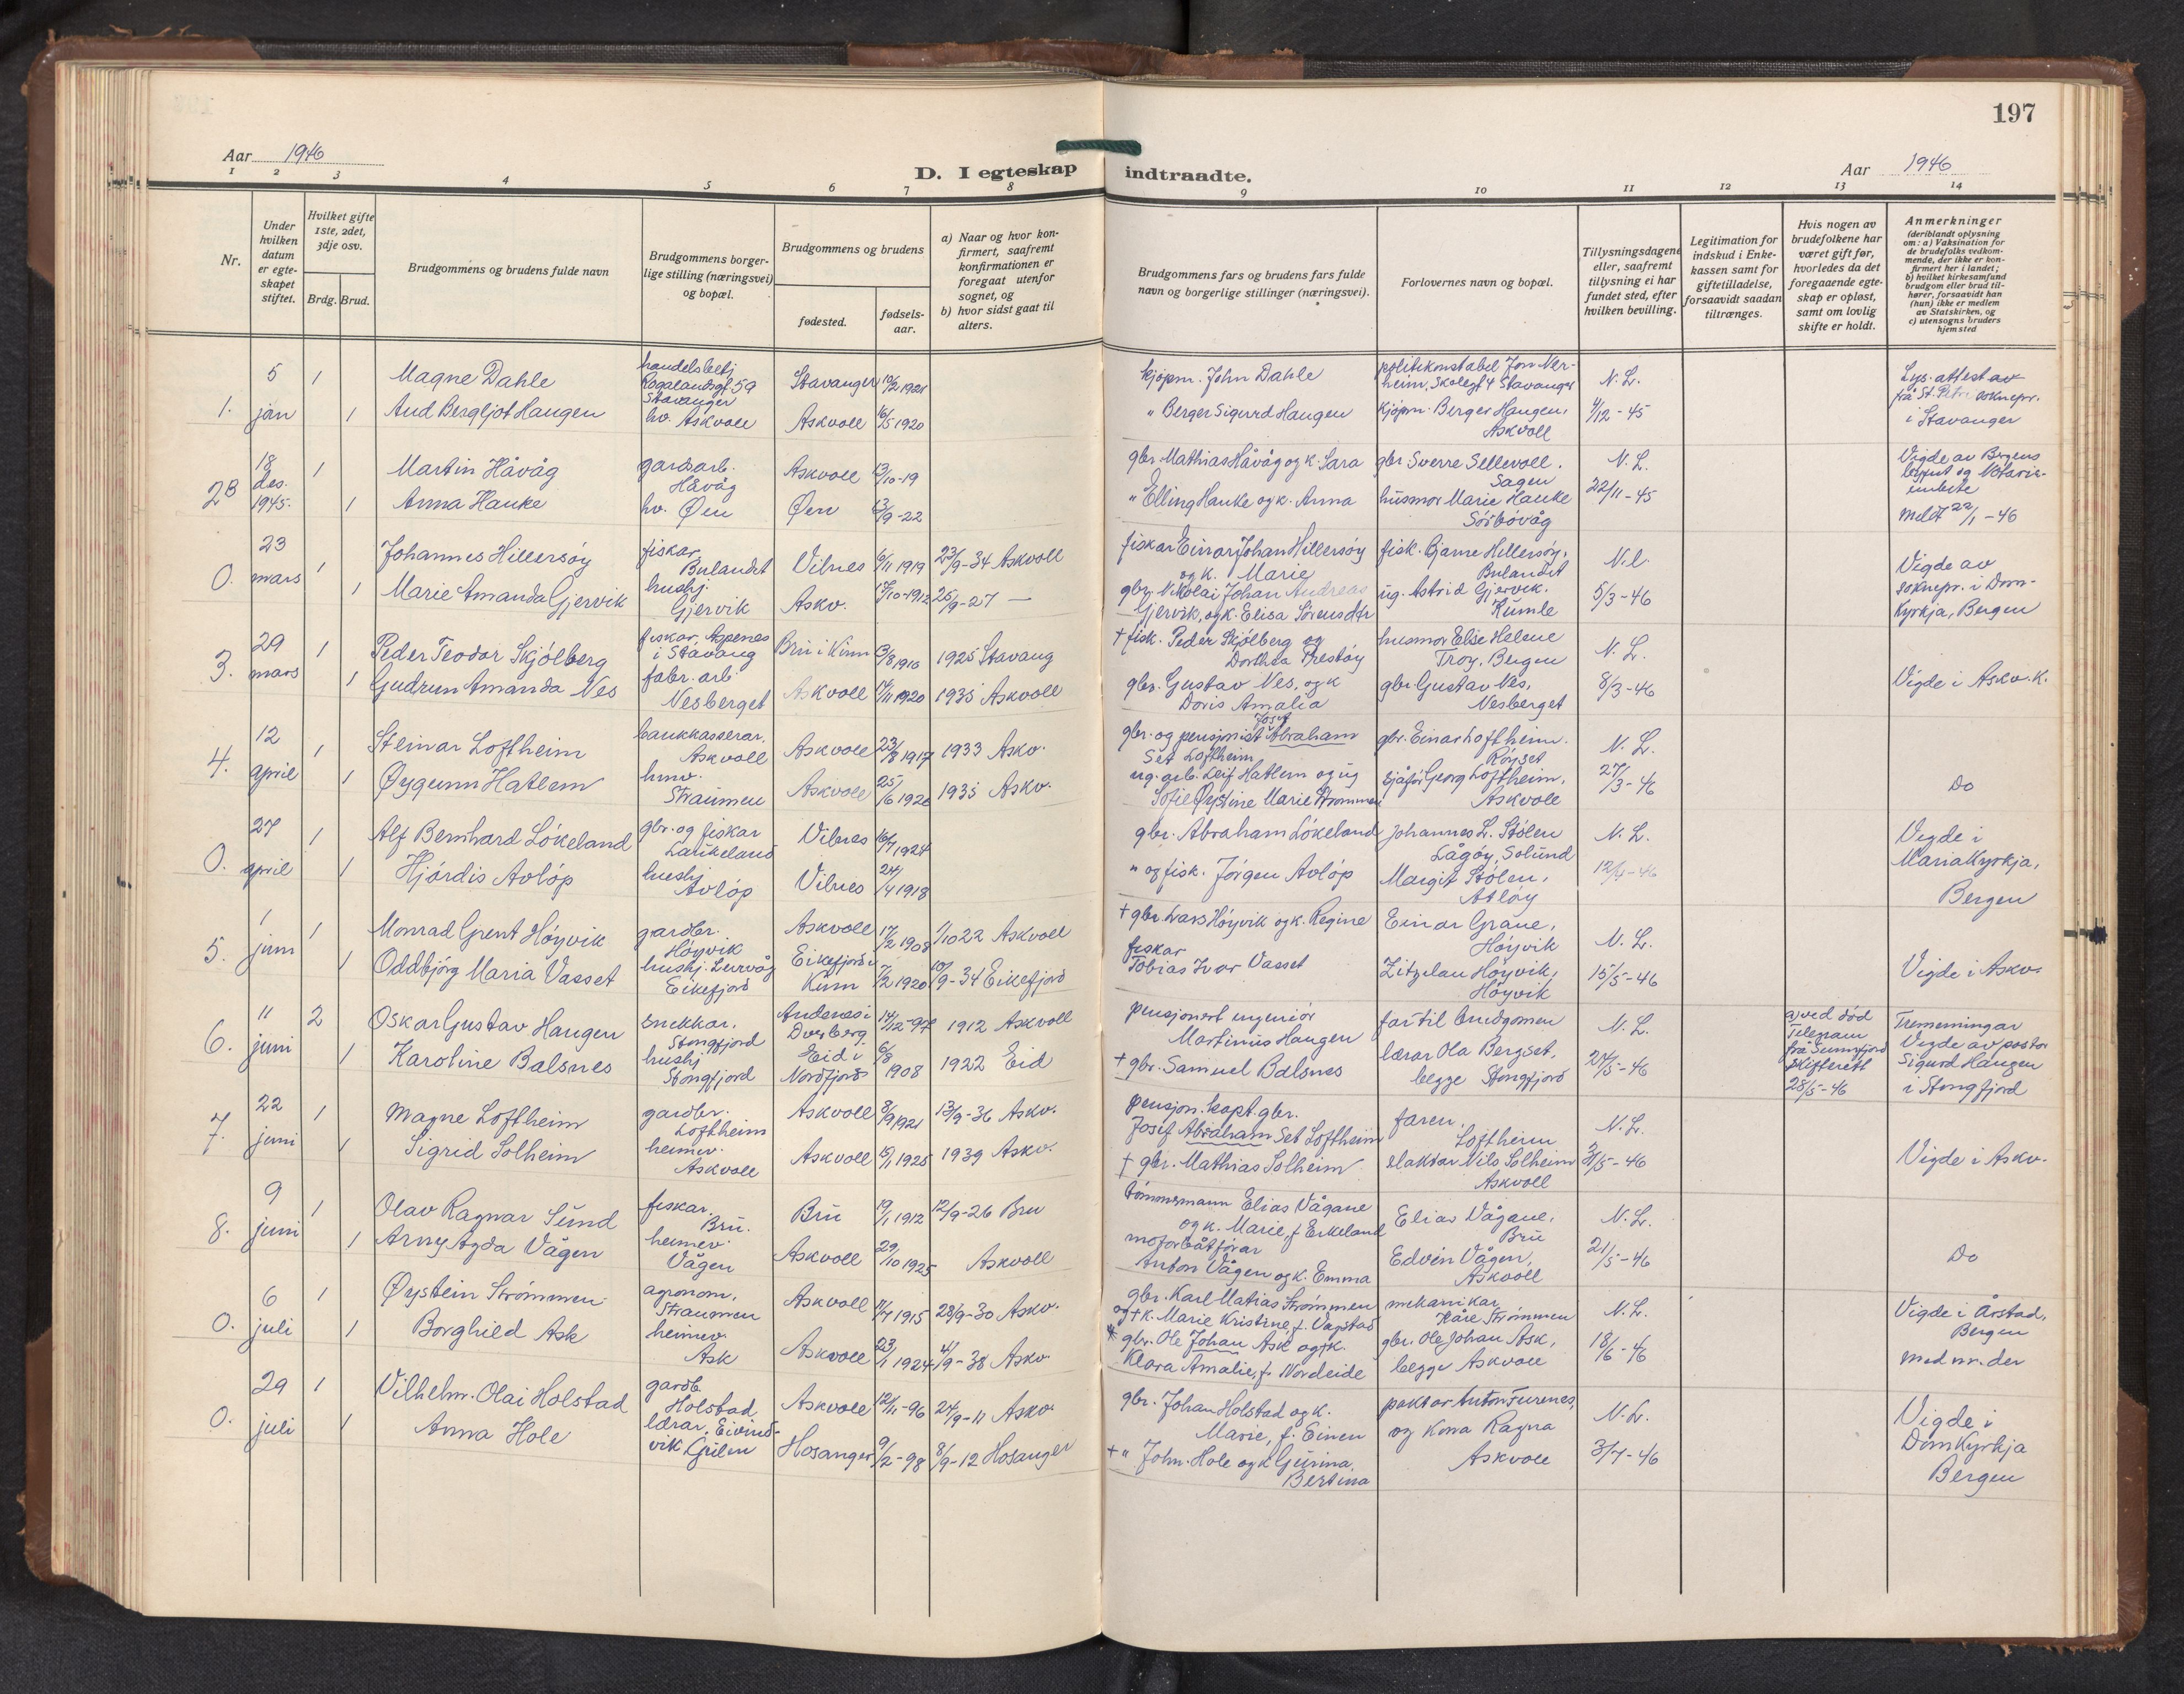 197
Aar 1946
D. I egteskap indtraadte.
Aar 1946
1 2 3 4 5 6 7 8 9 10 11 12 13 14
Nr.
Under hvilken datum er egteskapet stiftet.
Hvilket gifte 1ste, 2det, 3dje osv.
Brdg. Brud.
Brudgommens og brudens fulde navn
Brudgommens borgerlige stilling (næringsvei) og bopæl.
Brudgommens og brudens
fødested.
fødselsaar.
a) Naar og hvor konfirmert, saafremt konfirmationen er foregaat utenfor sognet, og
b) hvor sidst gaat til alters.
Brudgommens fars og brudens fars fulde navn og borgerlige stillinger (næringsvei).
Forlovernes navn og bopæl.
Tillysningsdagene eller, saafremt tillysning ei har fundet sted, efter hvilken bevilling.
Legitimation for indskud i Enkekassen samt for giftetilladelse, forsaavidt saadan tiltrænges.
Hvis nogen av brudefolkene har været gift før, hvorledes da det foregaaende egteskap er opløst, samt om lovlig skifte er holdt.
Anmerkninger
(deriblandt oplysning om: a) Vaksination for de brudefolks vedkommende, der ikke er konfirmert her i landet; b) hvilket kirkesamfund brudgom eller brud tilhører, forsaavidt han (hun) ikke er medlem av Statskirken, og c) utensogns bruders hjemsted
1. 5 jan
1 Magne Dahle handelsbetj. Rogalandsgt. 59 Stavanger Stavanger 1921 kjøpm. John Dahle politikonstabel Jon Nerheim, Skolegt 4 Stavanger N. L. Lys. attest av frå St. Petri soknepr. i Stavanger
1 Aud Bergljot Haugen hv. Askvoll Askvoll 16/5 1920 " Berger Sigurd Haugen kjøpm. Berger Haugen, Askvoll 4/12 - 45
2B 18 des. 1945.
1 Martin Håvåg gardsarb. Håvåg Askvoll 13/10-19 gbr. Mathias Håvåg og k. Sara gbr Sverre Sellevoll. Sagen N. L. Vigde av Bergens byfut og Notarieembete
1 Anna Hauke hv. Øen Øen 13/9-22 " Elling Hauke og k. Anna husmor Marie Hauke Sörbövåg 22/11-45 Meldt 22/1-46
0. 23 mars
1 Johannes Hillersöy fiskar, Bulandet Vilnes 6/11 1919 23/9-34 Askvoll fiskar Einar Johan Hillersöy og k. Marie fisk. Bjarne Hillersöy, Bulandet N. l. Vigde av soknepr. i Domkyrkja, Bergen
1 Marie Amanda Gjervik hushj. Gjervik Askv. 17/10-1912 25/9-27 — gbr. Nikolai Johan Andreas Gjervik, og k. Elisa Sörensdtr ug. Astrid Gjervik. Kumle 5/3-46
3. 29 mars
1 Peder Teodor Skjölberg fiskar, Aspenes i Stavang Bru i Kinn 13/8 1910 1925 Stavang + fisk. Peder Skjölberg og Dorthea Prestöy husmor Elise Helene Troy, Bergen N. L.
1 Gudrun Amanda Nes fabr. arb. Nesberget Askvoll 17/11 1920 1935 Askvoll gbr. Gustav Nes, og k Doris Amalia gbr. Gustav Nes, Nesberget 8/3-46 Vigde i Askv. K.
4. 12 april
1 Steinar Loftheim bankkasserar. Askvoll Askvoll 23/8 1917 1933 Askv. gbr. og pensjonist Josef Abraham Set Loftheim gbr. Einar Loftheim. Röyset N. L.
1 Øygunn Hatlem hmv. Straumen Askvoll 25/6 1920 1935 Askv. ug. geb. Leif Hatlem og ug Sofie Øystine Marie Strömmen sjåför Georg Loftheim, Askvoll 27/3-46 Do
0. 27 april
1 Alf Bernhard Lökeland gbr. og fiskar Laukeland Vilnes 16/7 1924 gbr. Abraham Lökeland Johannes L. Stölen Lågöy, Solund N. L. Vigde i Mariakyrkja, Bergen
1 Hjördis Avlöp hushj Avlöp Vilnes 24/4 1918 " og fisk. Jörgen Avlöp Margit Stölen, Atlöy 12/4-46
5. 1 juni
1 Monrad Grent Höyvik gardbr. Höyvik Askvoll 17/2 1908 1/10 22 Askvoll + gbr. Lars Höyvik og k. Regine Einar Grane, Höyvik N. L.
1 Oddbjörg Maria Vasset hushj. Leirvåg Eikefjord Eikefjord i Kinn 7/2 1920 10/9-34 Eikefjord fiskar Tobias Ivar Vasset Zitzelau Höyvik, Höyvik 15/5-46 Vigde i Askv.
6. 11 juni
2 Oskar Gustav Haugen snekkar. Stongfjord Andenes i Dverberg 14/12-97 1912 Askvoll pensjonert ingeniör Martinius Haugen far til brudgomen N. L. a) ved död Telegram frå Sunnfjord skifterett 28/5-46 Tremenningar Vigde av pastor Sigurd Haugen i Stongfjord
1 Karoline Balsnes hushj Stongfjord Eid i Nordfjord 6/8 1908 1922 Eid + gbr. Samuel Balsnes lærar Ola Bergset, begge Stongfjord 24/5-46
7. 22 juni
1 Magne Loftheim gardbr. Loftheim Askvoll 8/9 1921 13/9-36 Askv. pensjon. kapt. gbr. Josif Abraham Set Loftheim faren, Loftheim N. L.
1 Sigrid Solheim heimev. Askvoll Askvoll 15/1 1925 1939 Askv. + gbr. Mathias Solheim slaktar Nils Solheim Askvoll 31/5-46 Vigde i Askv.
8. 9 juni
1 Olav Ragnar Sund fiskar. Bru. Bru 19/1 1912 12/9-26 Bru tömmermann Elias Vågane og k. Marie, f. Erkeland Elias Vågane, Bru N. L.
1 Arny Agda Vågen heimev. Vågen Askvoll 29/10 1925 Askvoll motorbåtförar Anton Vågen og k. Emma Edvin Vågen, Askvoll 21/5-46 Do
0. 6 juli
1 Øystein Strömmen agronom, Straumen Askvoll 11/7 1915 28/9-30 Askv. gbr. Karl Matias Strömmen og + k. Marie Kristine f. Vagstad mekanikar Kåre Strömmen N. L. Vigde i Årstad, Bergen
1 Borghild Ask heimev. Ask Askvoll 23/1 1924 4/9-38 Askv gbr. Ole Johan Ask og + k. Klara Amalie, f. Nordeide gbr. Ole Johan Ask, begge Askvoll 18/6-46 Med nr. der
0. 29 juli
1 Vilhelm Olai Holstad gardb. Holstad Askvoll 12/11-96 24/9-11 Askv. gbr. Johan Holstad og k. Marie, f. Einen doktor Anton Furenes, og Kona Ragna Askvoll N. L. Vigde i Domkyrkja Bergen
1 Anna Hole lærar, Eivindvik Gulen Hosanger 9/2-98 8/9-12 Hosanger + " John Hole og k Gurina Bertina 3/7-46